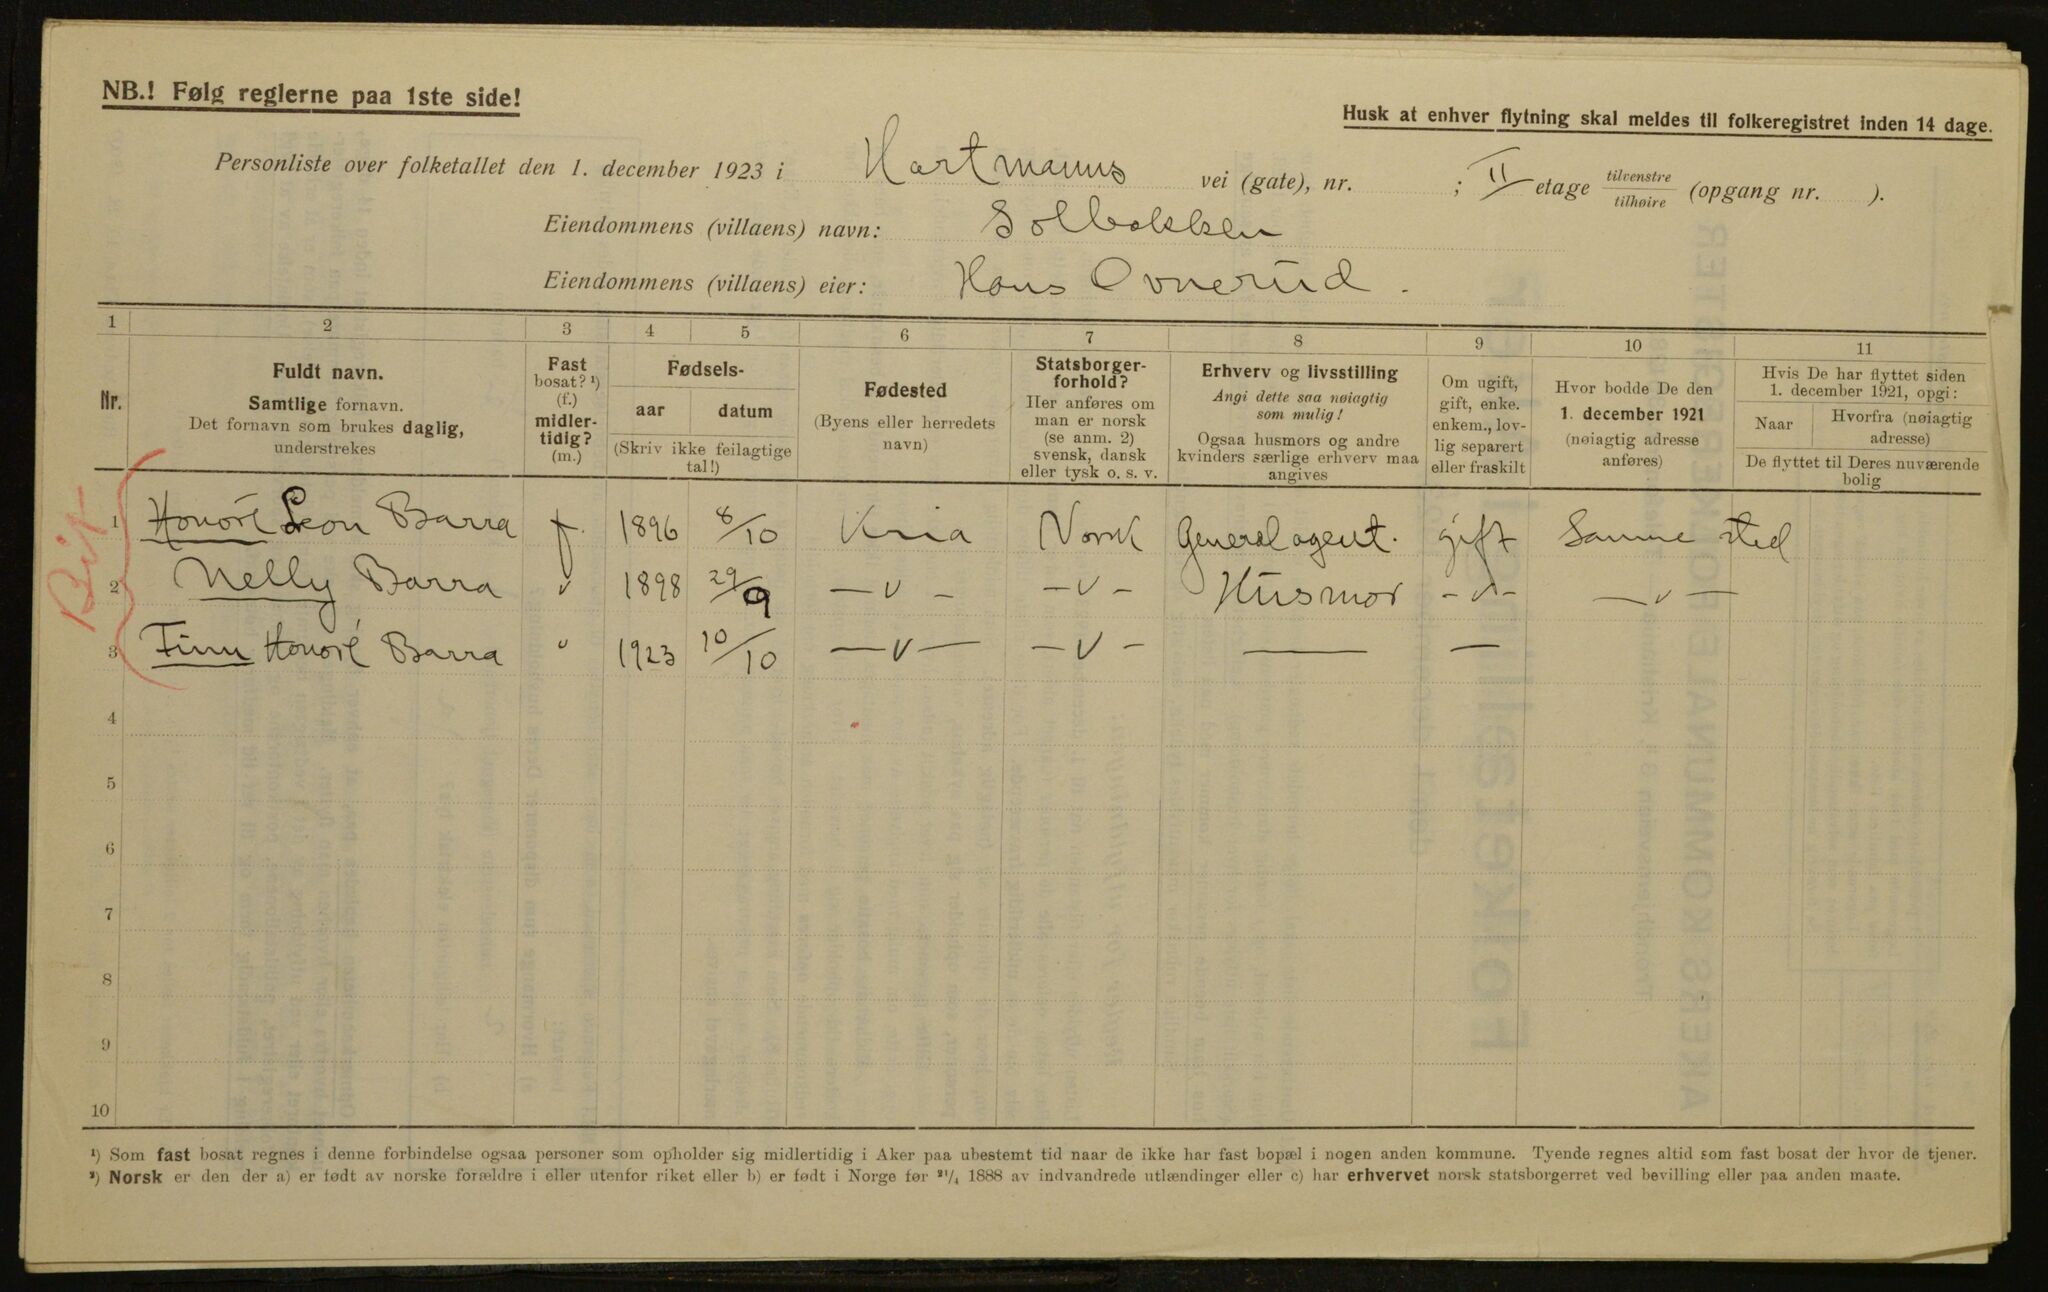 NB.! Følg reglerne paa 1ste side!
Husk at enhver flytning skal meldes til folkeregistret inden 14 dage.
Personliste over folketallet den 1. december 1923 i Hartmanns vei (gate), nr. ; II etage tilvenstre/tilhøire (opgang nr. ).
Eiendommens (villaens) navn: Solbakken
Eiendommens (villaens) eier: Hans Ovnerud.
1 2 3 4 5 6 7 8 9 10 11
Nr.
Fuldt navn.
Samtlige fornavn.
Det fornavn som brukes daglig,
understrekes
Fast
bosat? ¹)
(f.)
midler-
tidig?
(m.)
Fødsels-
aar datum
(Skriv ikke feilagtige
tal!)
Fødested
(Byens eller herredets
navn)
Statsborger-
forhold?
Her anføres om
man er norsk
(se anm. 2)
svensk, dansk
eller tysk o. s. v.
Erhverv og livsstilling
Angi dette saa nøiagtig
som mulig!
Ogsaa husmors og andre
kvinders særlige erhverv maa
angives
Om ugift,
gift, enke.
enkem., lov-
lig separert
eller fraskilt
Hvor bodde De den
1. december 1921
(nøiagtig adresse
anføres)
Hvis De har flyttet siden
1. december 1921, opgi:
Naar Hvorfra (nøiagtig
adresse)
De flyttet til Deres nuværende
bolig
1 Honoré Leon Barra f. 1896 8/10 Kria Norsk Generalagent. gift Samme sted
2 Nelly Barra v 1898 29/9 — v — — v — Husmor — v — — v —
3 Finn Honoré Barra " 1923 10/10 — v — — v — — —
4
5
6
7
8
9
10
¹) Som fast bosat regnes i denne forbindelse ogsaa personer som opholder sig midlertidig i Aker paa ubestemt tid naar de ikke har fast bopæl i nogen anden kommune. Tyende regnes altid som fast bosat der hvor de tjener.
²) Norsk er den der a) er født av norske forældre i eller utenfor riket eller b) er født i Norge før ²¹/₄ 1888 av indvandrede utlændinger eller c) har erhvervet norsk statsborgerret ved bevilling eller paa anden maate.